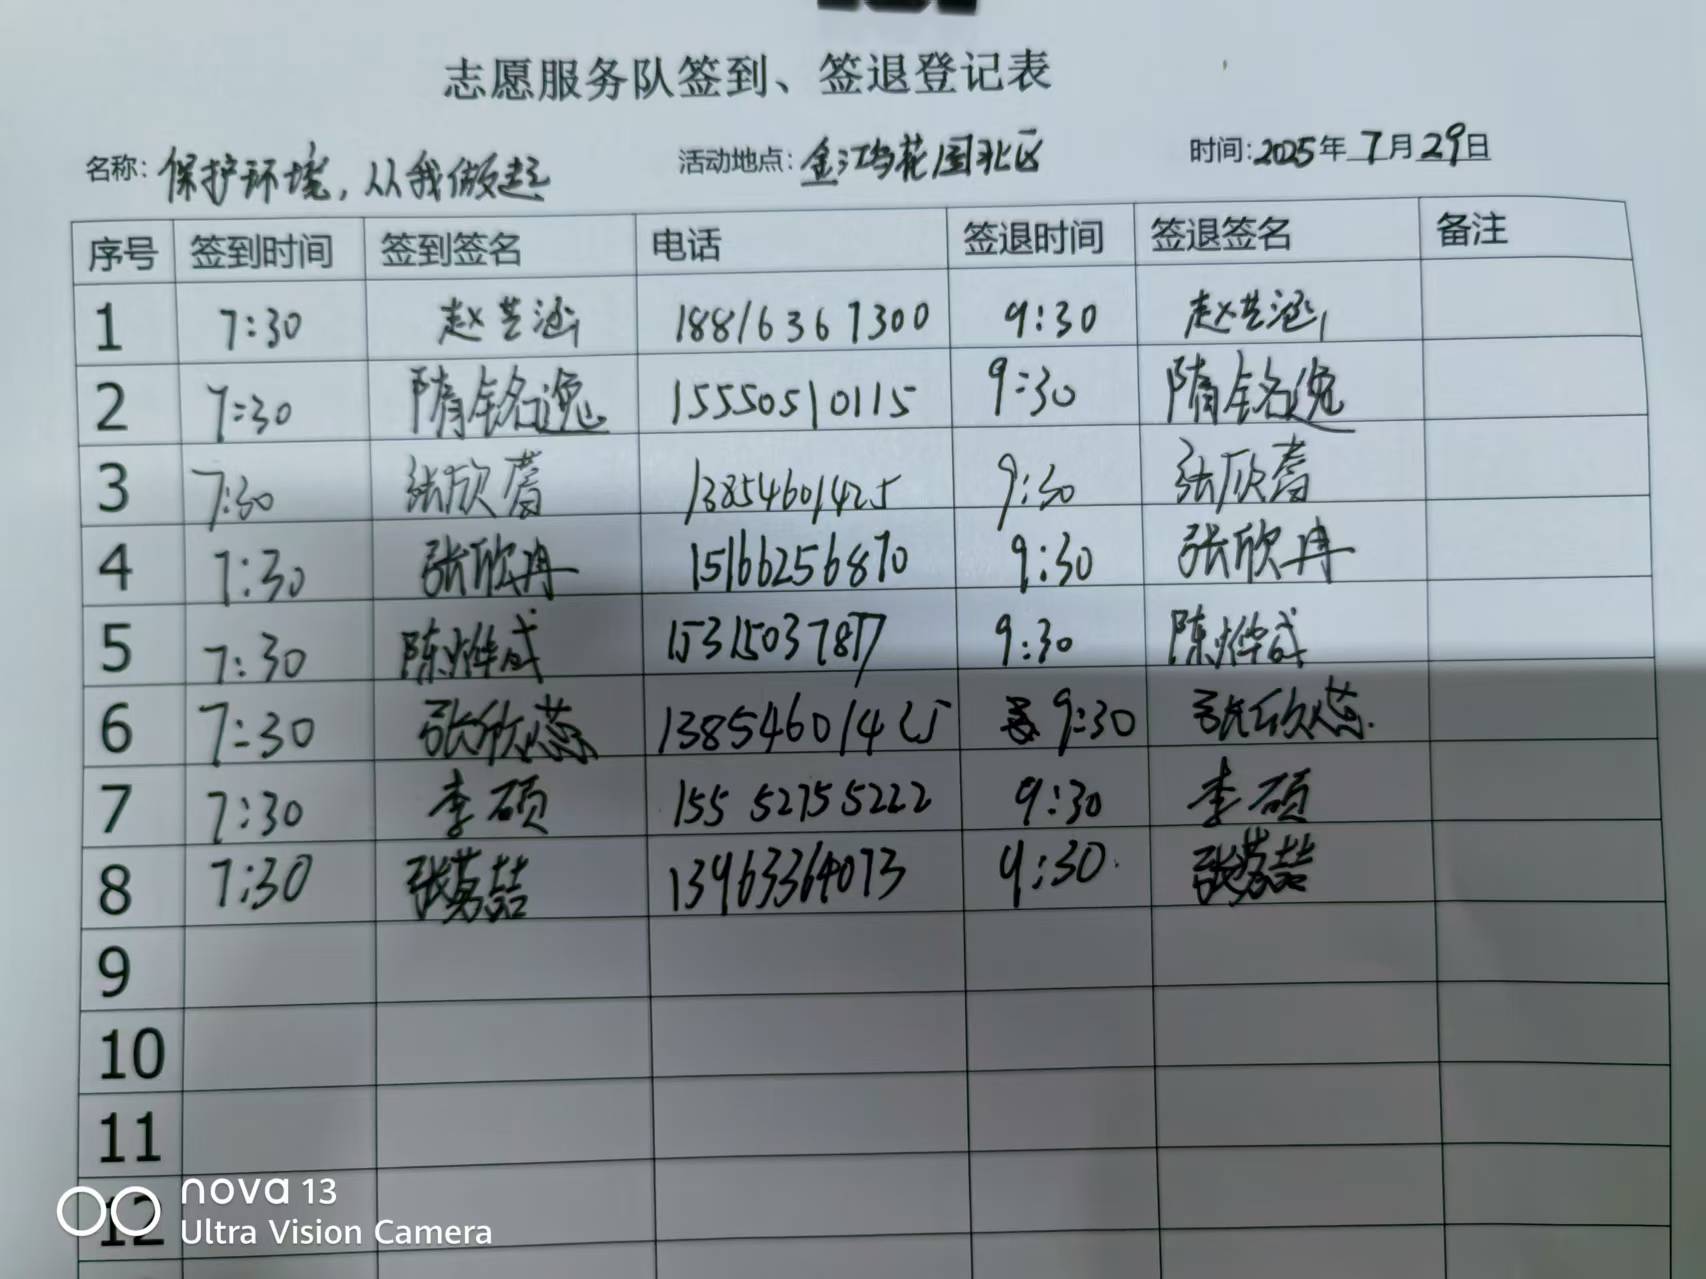 志愿服务队签到、签退登记表
名称: 保护环境,从我做起 活动地点: 金江鸿花园北区 时间: 2025年 7月29日
序号 签到时间 签到签名 电话 签退时间 签退签名 备注
1 7:30 赵芸涵 18816367300 9:30 赵芸涵
2 7:30 隋铭逸 15550510115 9:30 隋铭逸
3 7:30 张欣 13854601425 9:30 张欣
4 7:30 张欣冉 15166256870 9:30 张欣冉
5 7:30 陈烨成 15315037877 9:30 陈烨成
6 7:30 张欣蕊 13854601425 9:30 张欣蕊
7 7:30 李硕 155 5275 5222 9:30 李硕
8 7:30 张茗喆 13963364073 9:30 张茗喆
9
10
11
12
nova 13
Ultra Vision Camera